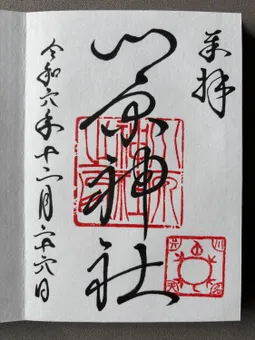 奉拝
川原神社
令和六年十二月二十六日